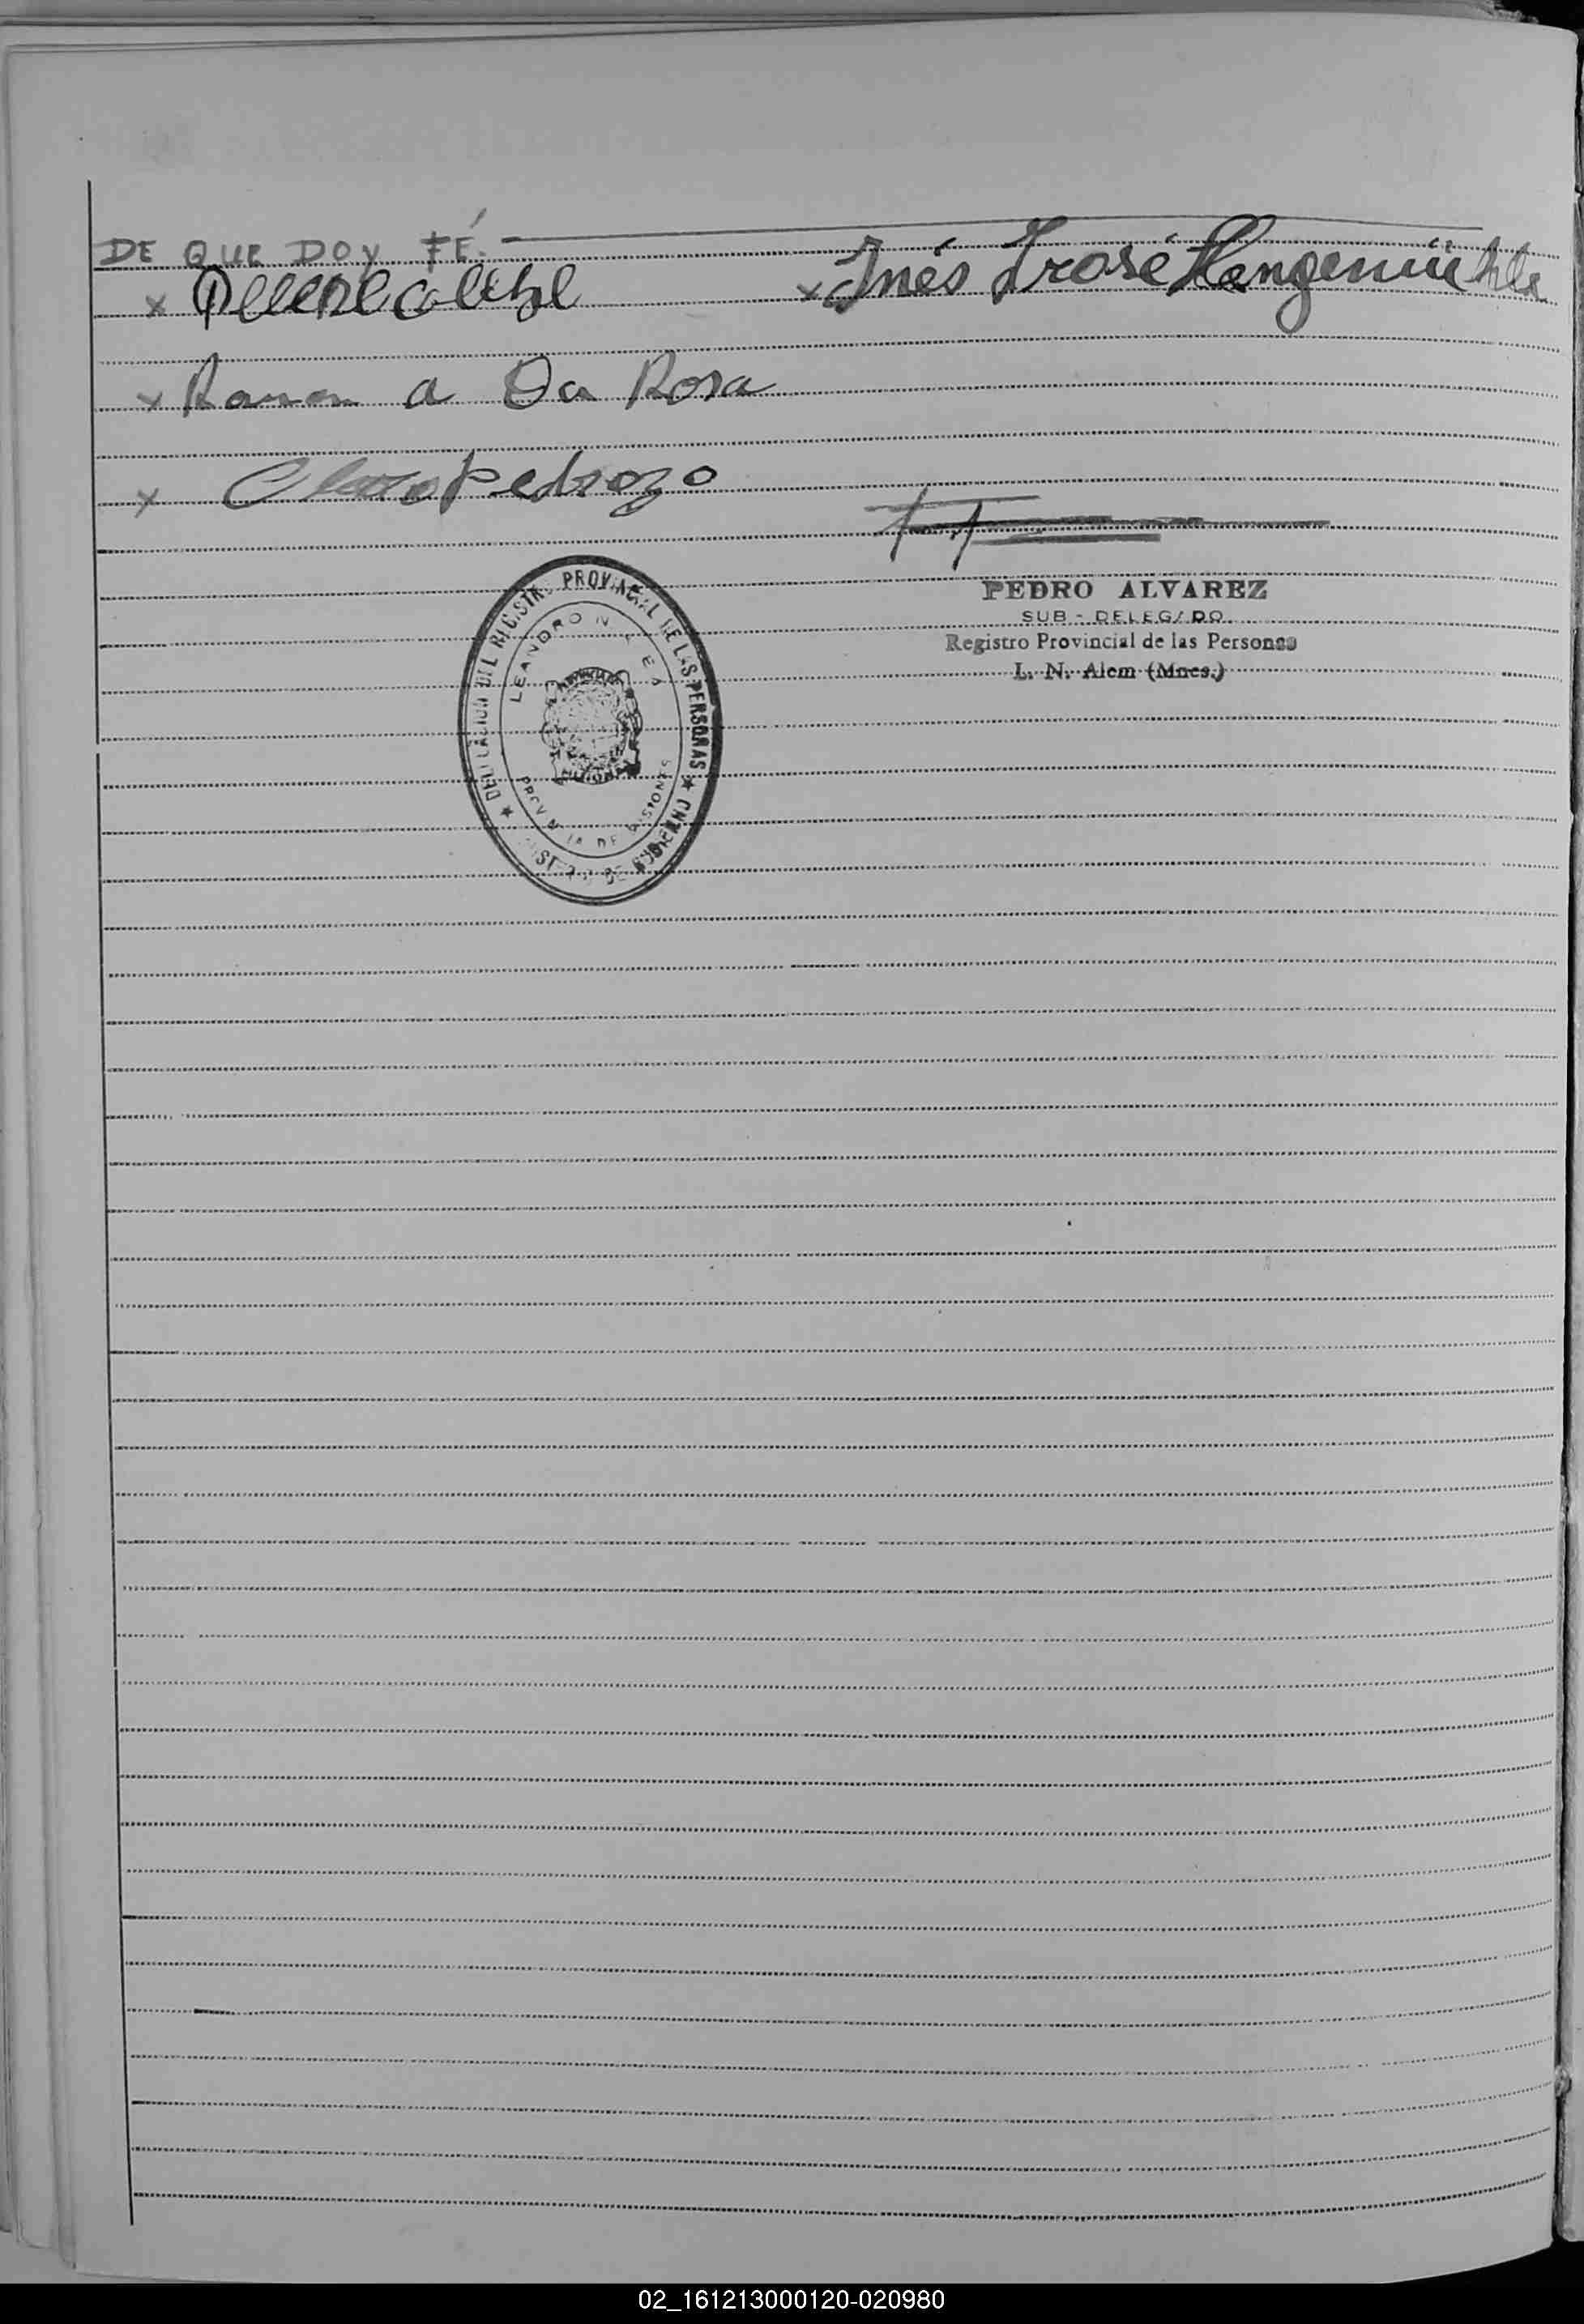 DE QUE DOY FÉ.
x x Inés Irasé Hengemühle
x Ramon a Da Rosa
x Claro Pedrozo
PEDRO ALVAREZ
SUB - DELEGADO
Registro Provincial de las Personas
L. N. Alem (Mnes.)
DELEGACION DEL REGISTRO PROVINCIAL DE LAS PERSONAS
LEANDRO N.
PROVINCIA DE MISIONES
DE GOBIERNO
02_161213000120-020980